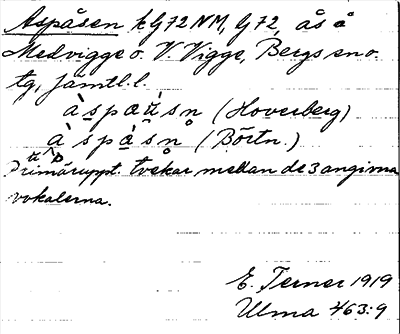 Aspåsen kG72NM, G72, ås å
Medvigge o. V. Vigge, Bergs sn o.
tg, Jämtl.l.
(Hoverberg)
(Börtn.)
Primäruppt. tvekar mellan de 3 angivna
vokalerna.
E. Terner 1919
Ulma 463:9